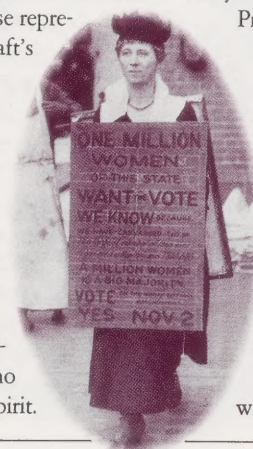 se repre-
aft's
Pr
ONE MILLION
WOMEN
OF THIS STATE
WANT THE VOTE
WE KNOW BECAUSE
A MILLION WOMEN
IS A BIG MAJORITY
VOTE
YES NOV 2
no
pirit.
w